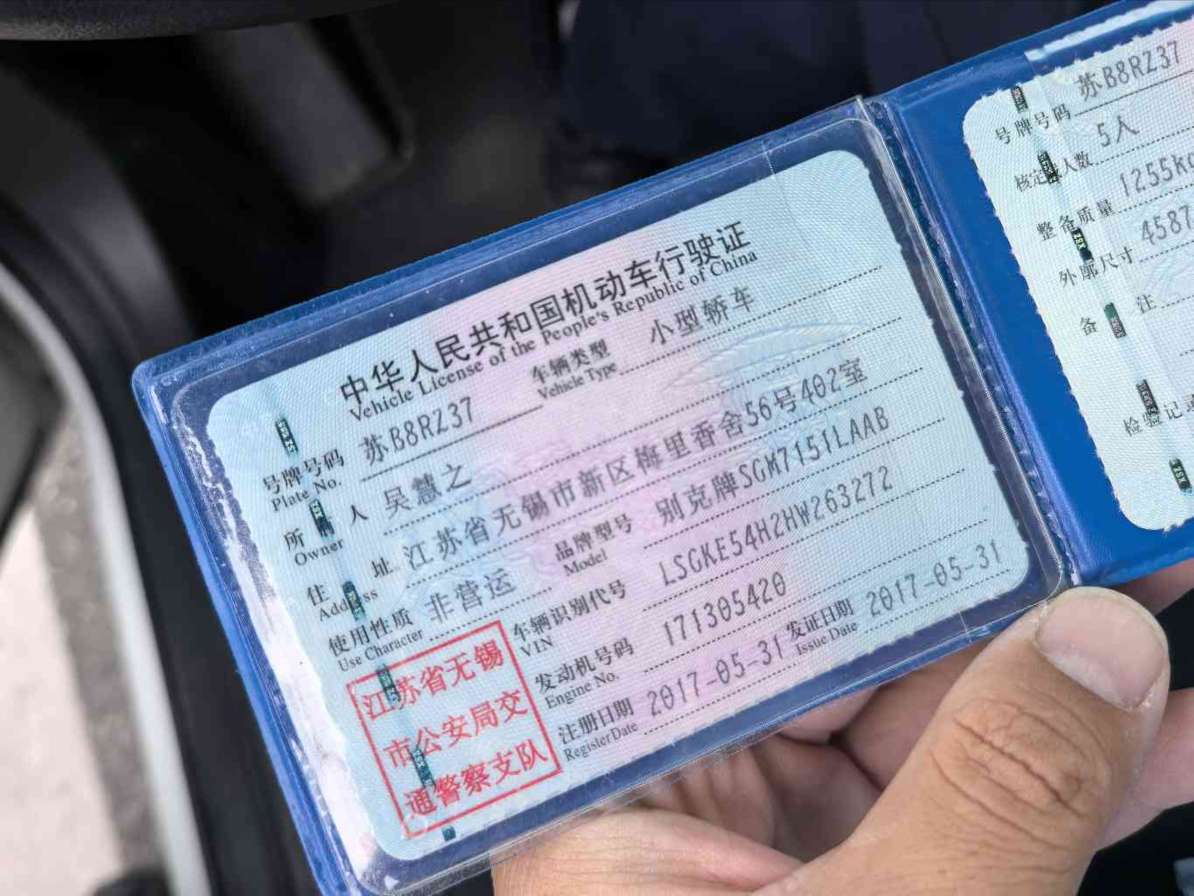 中华人民共和国机动车行驶证
Vehicle License of the People's Republic of China
号牌号码 苏B8RZ37 车辆类型 小型轿车
Plate No. Vehicle Type
所 人 吴慧之
Owner
住 址 江苏省无锡市新区梅里香舍56号402室
Address
使用性质 非营运 品牌型号 别克牌SGM7151LAAB
Use Character Model
车辆识别代号 LSGKE54H2HW263272
VIN
发动机号码 171305420
Engine No.
注册日期 2017-05-31 发证日期 2017-05-31
Register Date Issue Date
江苏省无锡
市公安局交
通警察支队
号牌号码 苏B8RZ37
核定 人数 5人
整备质量 1255kg
外廓尺寸 4587
备 注
检验记录